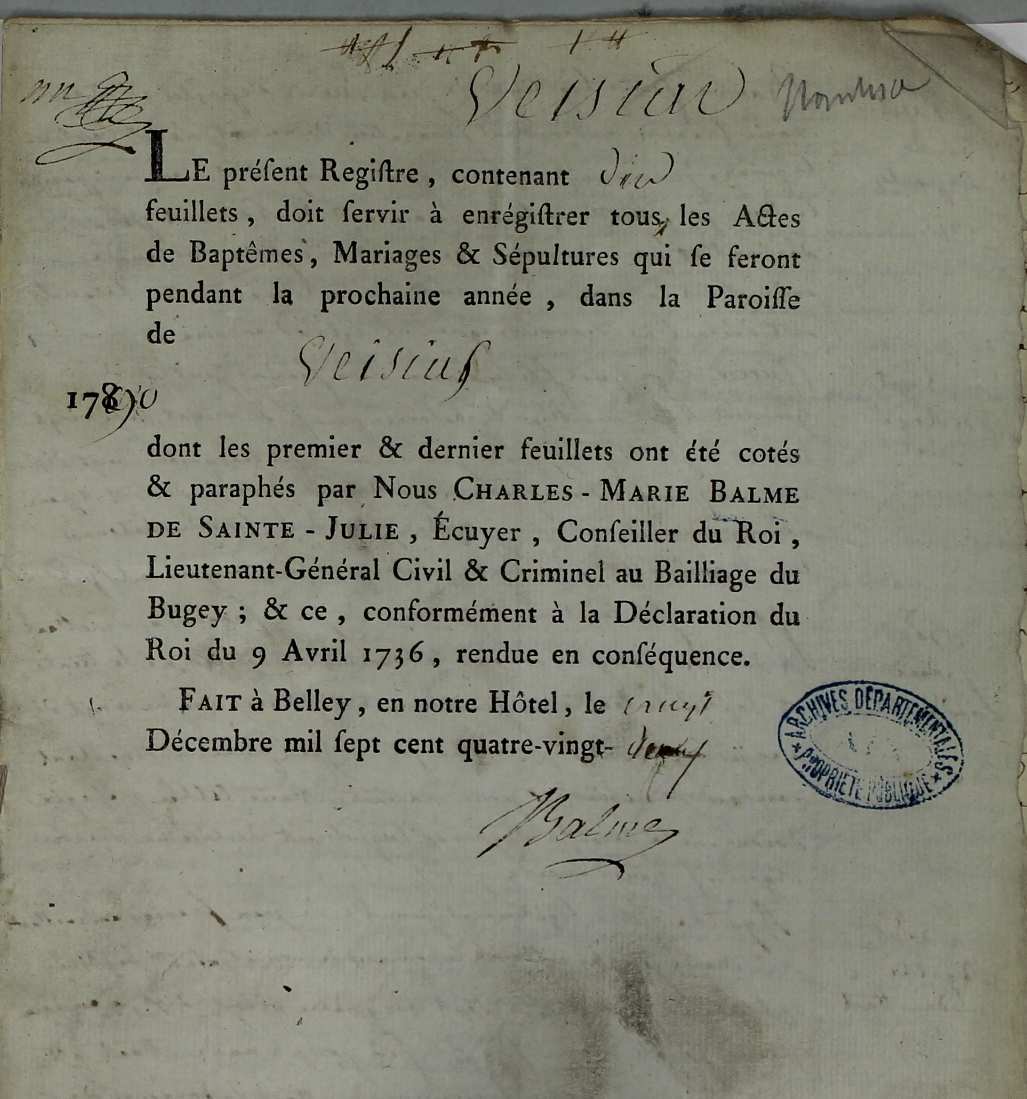 Veisiau
LE préſent Regiſtre, contenant dix
feuillets, doit ſervir à enrégiſtrer tous les Actes
de Baptêmes, Mariages & Sépultures qui ſe feront
pendant la prochaine année, dans la Paroiſſe
de
Veisiaux
1790
dont les premier & dernier feuillets ont été cotés
& paraphés par Nous CHARLES-MARIE BALME
DE SAINTE-JULIE, Écuyer, Conſeiller du Roi,
Lieutenant-Général Civil & Criminel au Bailliage du
Bugey; & ce, conformément à la Déclaration du
Roi du 9 Avril 1736, rendue en conſéquence.
FAIT à Belley, en notre Hôtel, le vingt
Décembre mil ſept cent quatre-vingt-
Balme
ARCHIVES DÉPARTEMENTALES
PROPRIÉTÉ PUBLIQUE